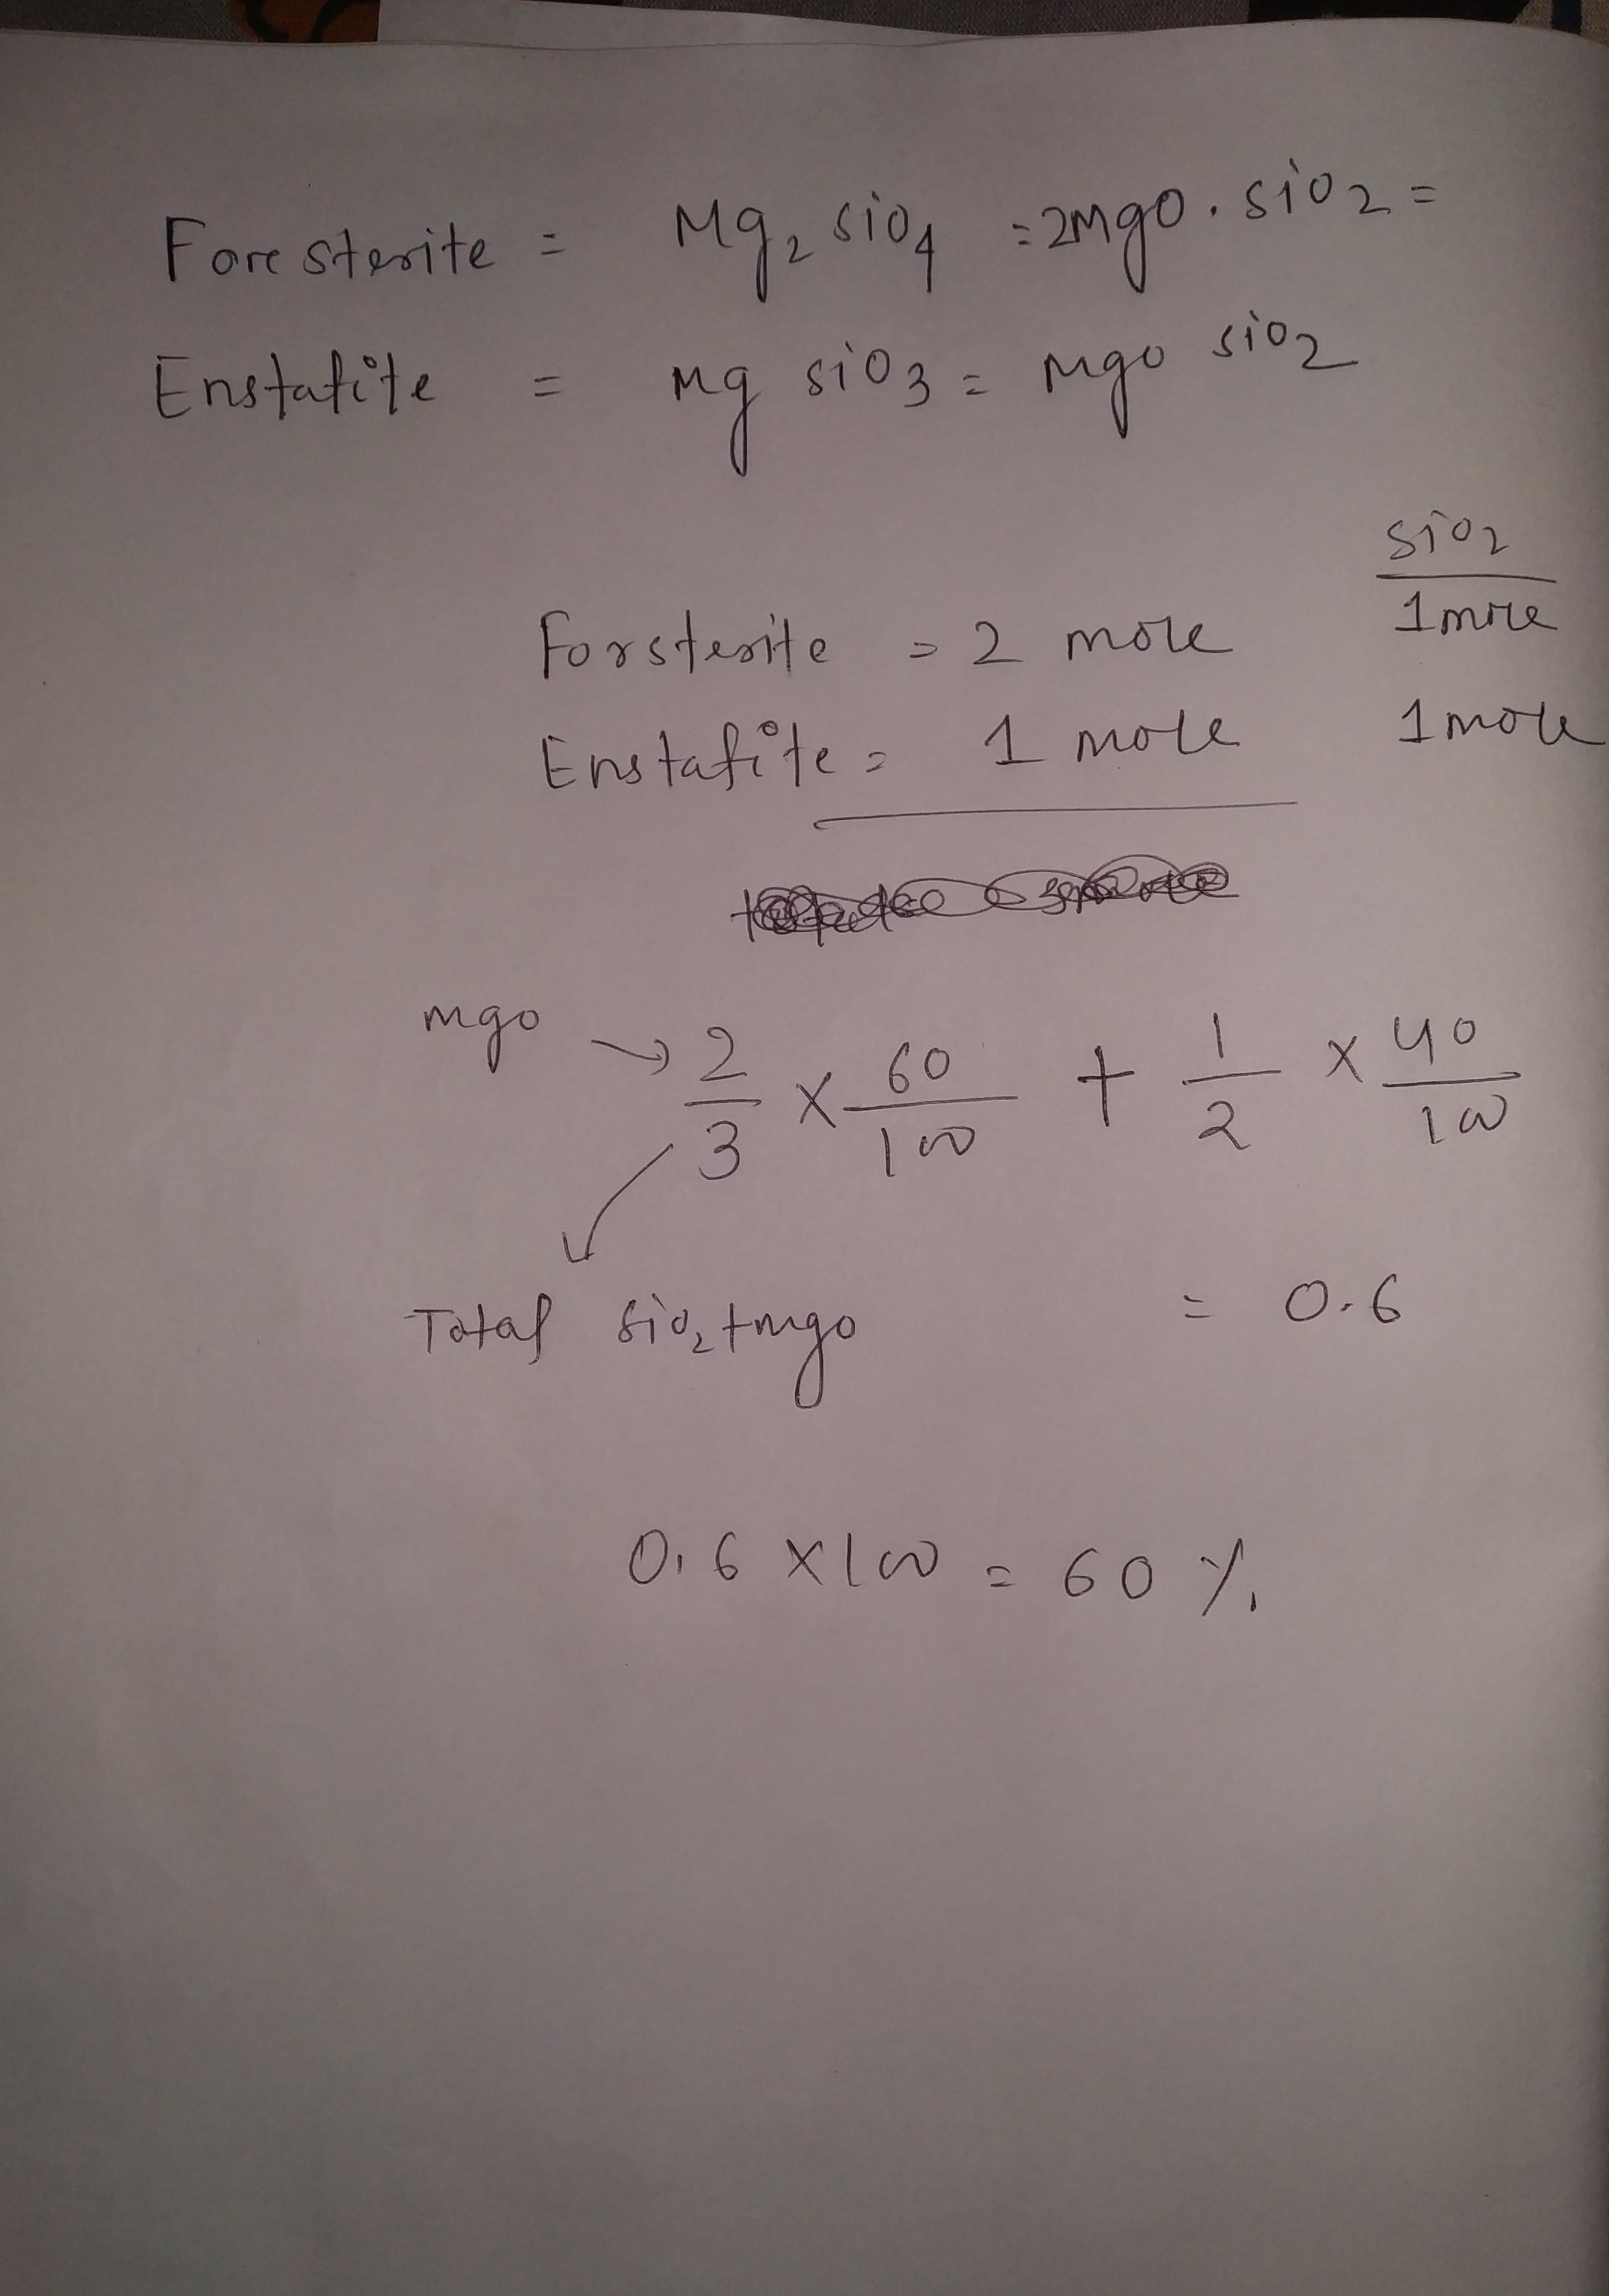 Foresterite = Mg₂ SiO₄ = 2MgO . SiO₂ =
Enstatite = Mg SiO₃ = MgO SiO₂
SiO₂
Forsterite = 2 mole 1 mole
Enstatite = 1 mole 1 mole
mgo → 2/3 × 60/100 + 1/2 × 40/100
Total SiO₂ + mgo = 0.6
0.6 × 100 = 60 %